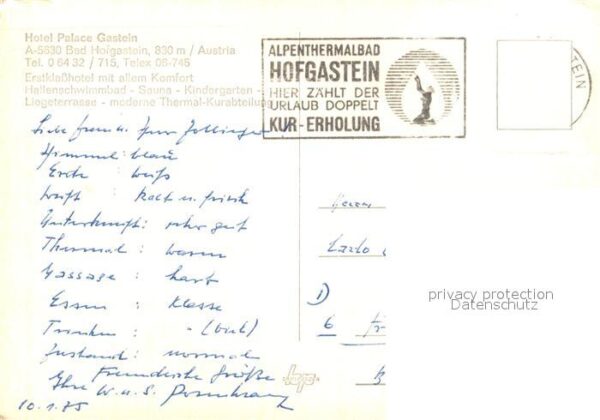 Hotel Palace Gastein
A-5630 Bad Hofgastein, 830 m / Austria
Tel. 0 64 32 / 715, Telex 06-745
Erstklaßhotel mit allem Komfort
Hallenschwimmbad - Sauna - Kindergarten -
Liegeterrasse - moderne Thermal-Kurabteilung
ALPENTHERMALBAD
HOFGASTEIN
HIER ZÄHLT DER
URLAUB DOPPELT
KUR-ERHOLUNG
TEIN
Liebe Frau u. Herr Zollinger
Himmel: blau
Erde: weiß
Luft: kalt u. frisch
Unterkunft: sehr gut
Thermal: warm
Massage: hart
Essen: Klasse
Trinken: - (viel)
Zustand: normal
Freundliche Grüße
Ihre W. u. S.
10.1.75
Herrn
D
6
privacy protection
Datenschutz